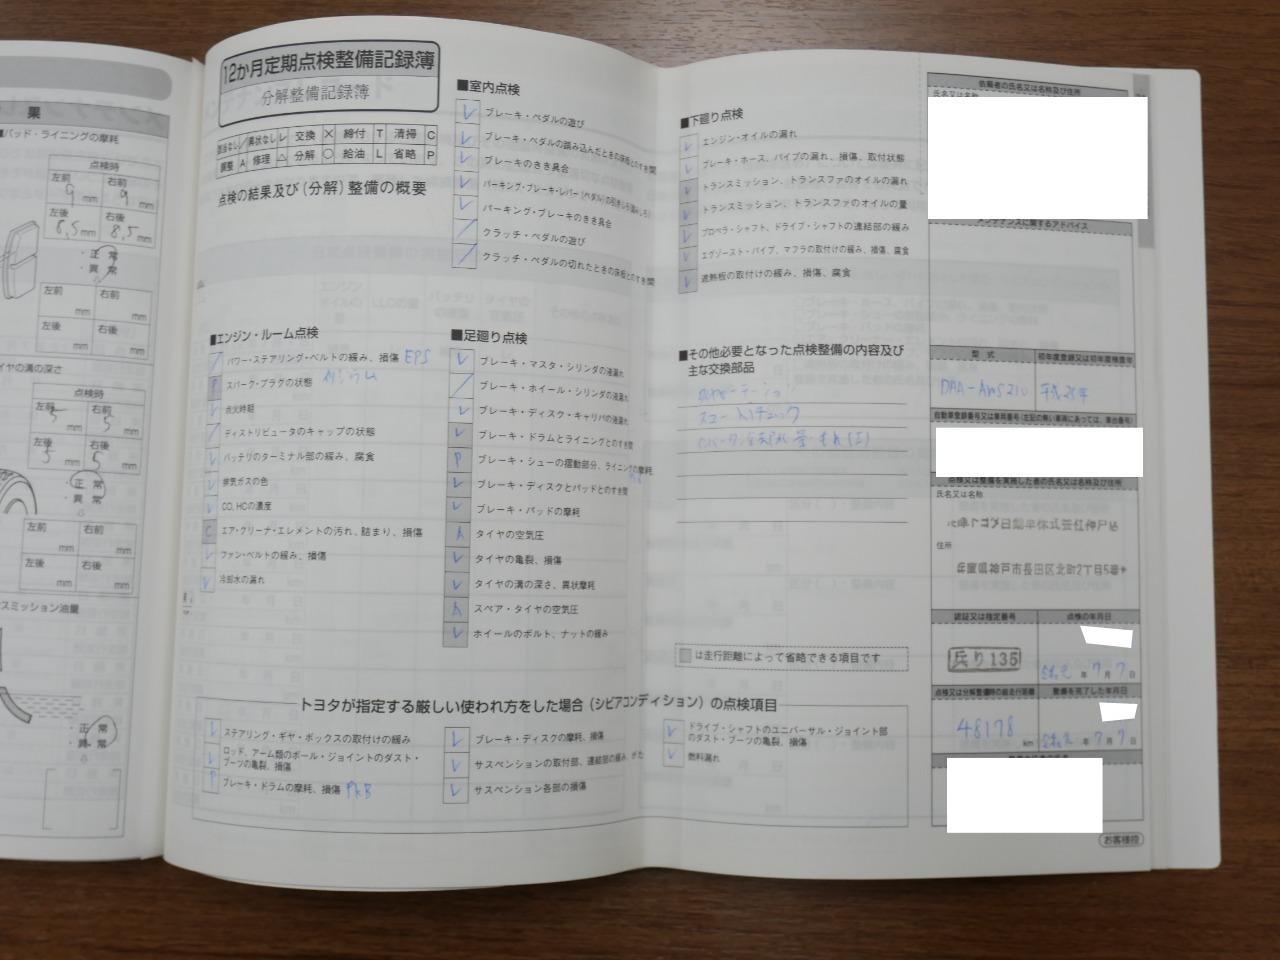 果
パッド・ライニングの摩耗
点検時
左前 右前
9mm 9mm
左後 右後
8.5mm 8.5mm
・正常
・異常
左前 右前
mm mm
左後 右後
mm mm
イヤの溝の深さ
点検時
左前 右前
5 5
左後 右後
5 5
・正常
・異常
左前 右前
mm mm
左後 右後
mm mm
スミッション油量
・正常
・異常
12か月定期点検整備記録簿
分解整備記録簿
該当なし / 異状なし レ 交換 × 締付 T 清掃 C
調整 A 修理 △ 分解 ○ 給油 L 省略 P
点検の結果及び(分解)整備の概要
■エンジン・ルーム点検
/ パワー・ステアリング・ベルトの緩み、損傷 EPS
P スパーク・プラグの状態 イリジウム
レ 点火時期
/ ディストリビュータのキャップの状態
レ バッテリのターミナル部の緩み、腐食
レ 排気ガスの色
レ CO、HCの濃度
C エア・クリーナ・エレメントの汚れ、詰まり、損傷
レ ファン・ベルトの緩み、損傷
レ 冷却水の漏れ
■室内点検
レ ブレーキ・ペダルの遊び
レ ブレーキ・ペダルの踏み込んだときの床板とのすき間
レ ブレーキのきき具合
レ パーキング・ブレーキ・レバー(ペダル)の引きしろ(踏みしろ)
レ パーキング・ブレーキのきき具合
/ クラッチ・ペダルの遊び
/ クラッチ・ペダルの切れたときの床板とのすき間
■足廻り点検
レ ブレーキ・マスタ・シリンダの液漏れ
/ ブレーキ・ホイール・シリンダの液漏れ
レ ブレーキ・ディスク・キャリパの液漏れ
レ ブレーキ・ドラムとライニングとのすき間
P ブレーキ・シューの摺動部分、ライニングの摩耗
レ ブレーキ・ディスクとパッドとのすき間
レ ブレーキ・パッドの摩耗
A タイヤの空気圧
レ タイヤの亀裂、損傷
レ タイヤの溝の深さ、異状摩耗
A スペア・タイヤの空気圧
レ ホイールのボルト、ナットの緩み
■下廻り点検
レ エンジン・オイルの漏れ
レ ブレーキ・ホース、パイプの漏れ、損傷、取付状態
レ トランスミッション、トランスファのオイルの漏れ
レ トランスミッション、トランスファのオイルの量
レ プロペラ・シャフト、ドライブ・シャフトの連結部の緩み
レ エグゾースト・パイプ、マフラの取付けの緩み、損傷、腐食
レ 遮熱板の取付けの緩み、損傷、腐食
■その他必要となった点検整備の内容及び
主な交換部品
は走行距離によって省略できる項目です
トヨタが指定する厳しい使われ方をした場合(シビアコンディション)の点検項目
レ ステアリング・ギヤ・ボックスの取付けの緩み
レ ロッド、アーム類のボール・ジョイントのダスト・
ブーツの亀裂、損傷
P ブレーキ・ドラムの摩耗、損傷 PKB
レ ブレーキ・ディスクの摩耗、損傷
レ サスペンションの取付部、連結部の緩み、がた
レ サスペンション各部の損傷
レ ドライブ・シャフトのユニバーサル・ジョイント部
のダスト・ブーツの亀裂、損傷
レ 燃料漏れ
依頼者の氏名又は名称及び住所
氏名又は名称
メンテナンスに関するアドバイス
型式 初年度登録又は初年度検査年
DAA-AWS210 平成25年
自動車登録番号又は車両番号(左記の無い車両にあっては、車台番号)
点検又は整備を実施した者の氏名又は名称及び住所
氏名又は名称
兵庫トヨタ自動車株式会社神戸
住所
兵庫県神戸市長田区北町2丁目5番
認証又は指定番号 点検の年月日
兵り135 令和元年7月7日
点検又は分解整備時の総走行距離 整備を完了した年月日
48178 km 令和元年7月7日
お客様控